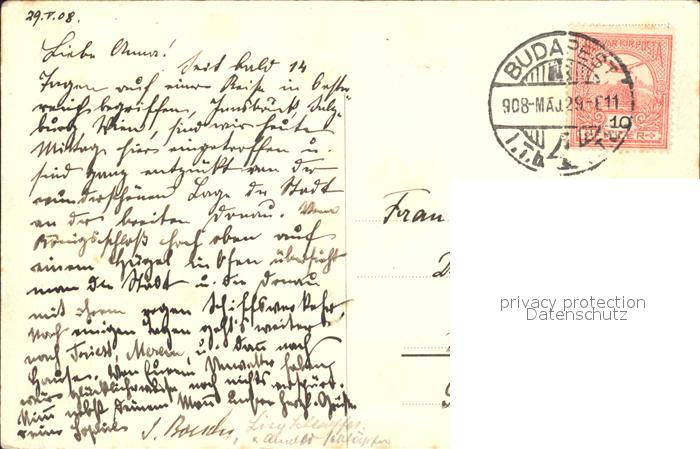 29.V.08.
Liebe Anna!
Seit bald 14
Tagen auf einer Reise in Oester-
reich begriffen, Innsbruck Salz-
burg, Wien, sind wir heute
Mittag hier eingetroffen u.
sind ganz entzückt von der
wunderschönen Lage der Stadt
an der breiten Donau. Vom
Königsschloß hoch oben auf
einem Hügel in Ofen übersieht
man die Stadt u. die Donau
mit ihrem regen Schiffsverkehr.
Nach einigen Tagen geht's weiter
nach Triest, Meran, u. dann nach
Hause. Von Eurem Verwalter haben
wir glücklicherweise noch nichts
nebst Deinem Mann
BUDAPEST
908-MÁJ.29
MAGYAR KIR. POSTA
10
FILLÉR
Frau
privacy protection
Datenschutz